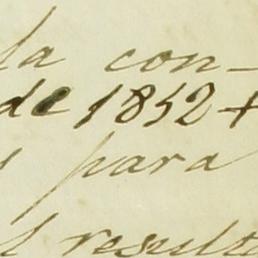 la con-
de 1852 +
para
resulta